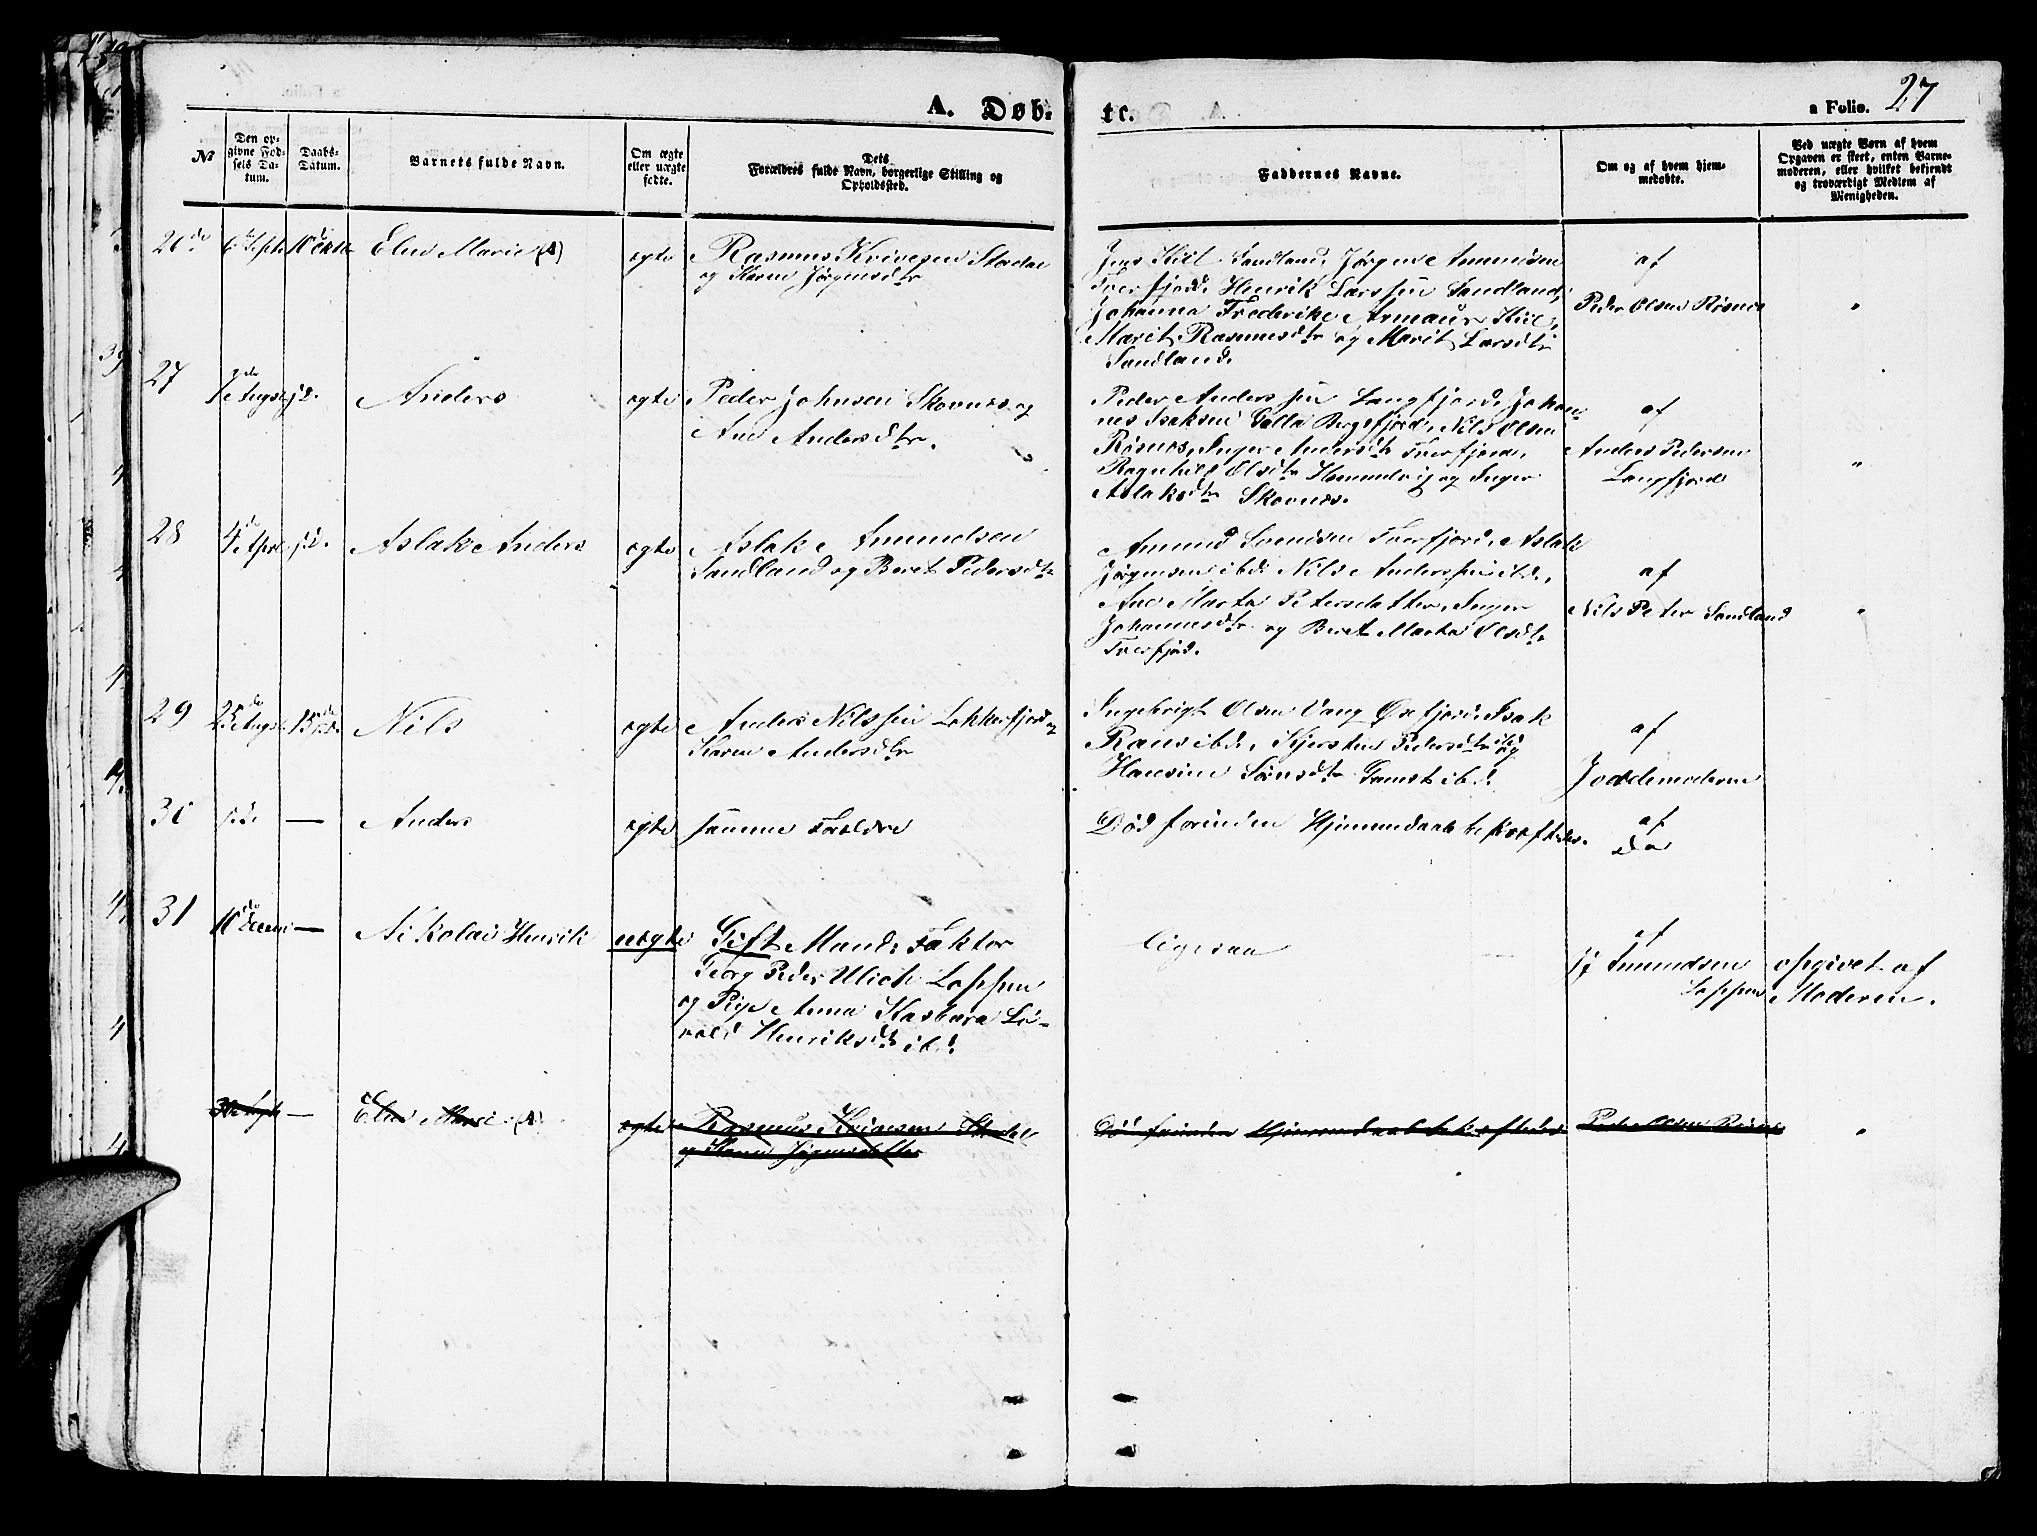 A. Døb- te. a Folio. 27
No
Den op-
givne Fød-
sels Da-
tum.
Daabs-
Datum.
Barnets fulde Navn.
Om ægte
eller uægte
fødte.
Dets
Forældres fulde Navn, borgerlige Stilling og
Opholdssted.
Faddernes Navne.
Om og af hvem hjem-
medøbte.
Ved uægte Børn af hvem
Opgaven er skeet, enten Barne-
moderen, eller hvilket bekjendt
og troværdigt Medlem af
Menigheden.
26 6 Septe 10 Okto Elen Marie (A) ægte Rasmus
og Karen Jørgensdtr
Jens Kiil Sandland, Jørgen Amundsen
Tverfjord, Henrik Larssen Sandland,
Johanna Frederike Armauer Kiil,
Marit Rasmusdtr og Marit Larsdtr
Sandland.
af
Peder Olsen Røsnes
"
27 7de Augst j.d. Anders ægte Peder Johnsen Skovnes og
Ane Andersdtr.
Peder Anderssen Langfjord, Johan-
nes Isaksen Galla Bergsfjord, Nils Olsen
Røsnes, Inger Andersdtr Tverfjord,
Ragnhild Olsdtr og Inger
Aslaksdtr Skovnes.
af
Anders Pedersen
Langfjord
"
28 4de April j.d. Aslak Anders ægte Aslak Amundsen
Sandland og Beret Pedersdtr
Amund Svendsen Tverfjord, Aslak
Jørgensen ibd: Nils Anderssen ibd.,
Ane Marta Petersdatter, Inger
Johannesdtr og Beret Marta Olsdtr
Tverfjord.
af
Nils Peter Sandland
"
29 25de Augst 15de Nils ægte Anders Nilssen Lokkerfjord og
Karen Andersdtr
Ingebrigt Olsen Vang Øxfjord, Isak
Rans ibd., Kjersten Pedersdtr ibd og
Hansine Dtr Gamst ibd.
af
Jordemoderen
30 j.d. — Anders ægte samme Forældre
Død forinden Hjemmedaab bekræftedes.
af
Do
31 10de Decem — Nikolai Henrik uægte Gift Mand, Faktor
Georg Peder Ulich Loppen
og Pige Anna Barbara Li-
vold Henriksdtr ibd.
Ligesaa
af
J Amundsen
Loppen
opgivet af
Moderen.
— Elen Marie (A) ægte Rasmus
og Karen Jørgensdatter
Død forinden Hjemmedaab bekræftedes
Peder Olsen Røsnes
"